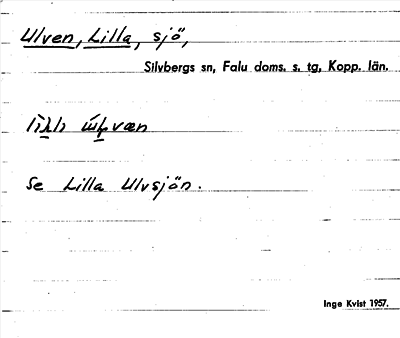 Ulven, Lilla, sjö,
Silvbergs sn, Falu doms. s. tg, Kopp. län.
Se Lilla Ulvsjön.
Inge Kvist 1957.